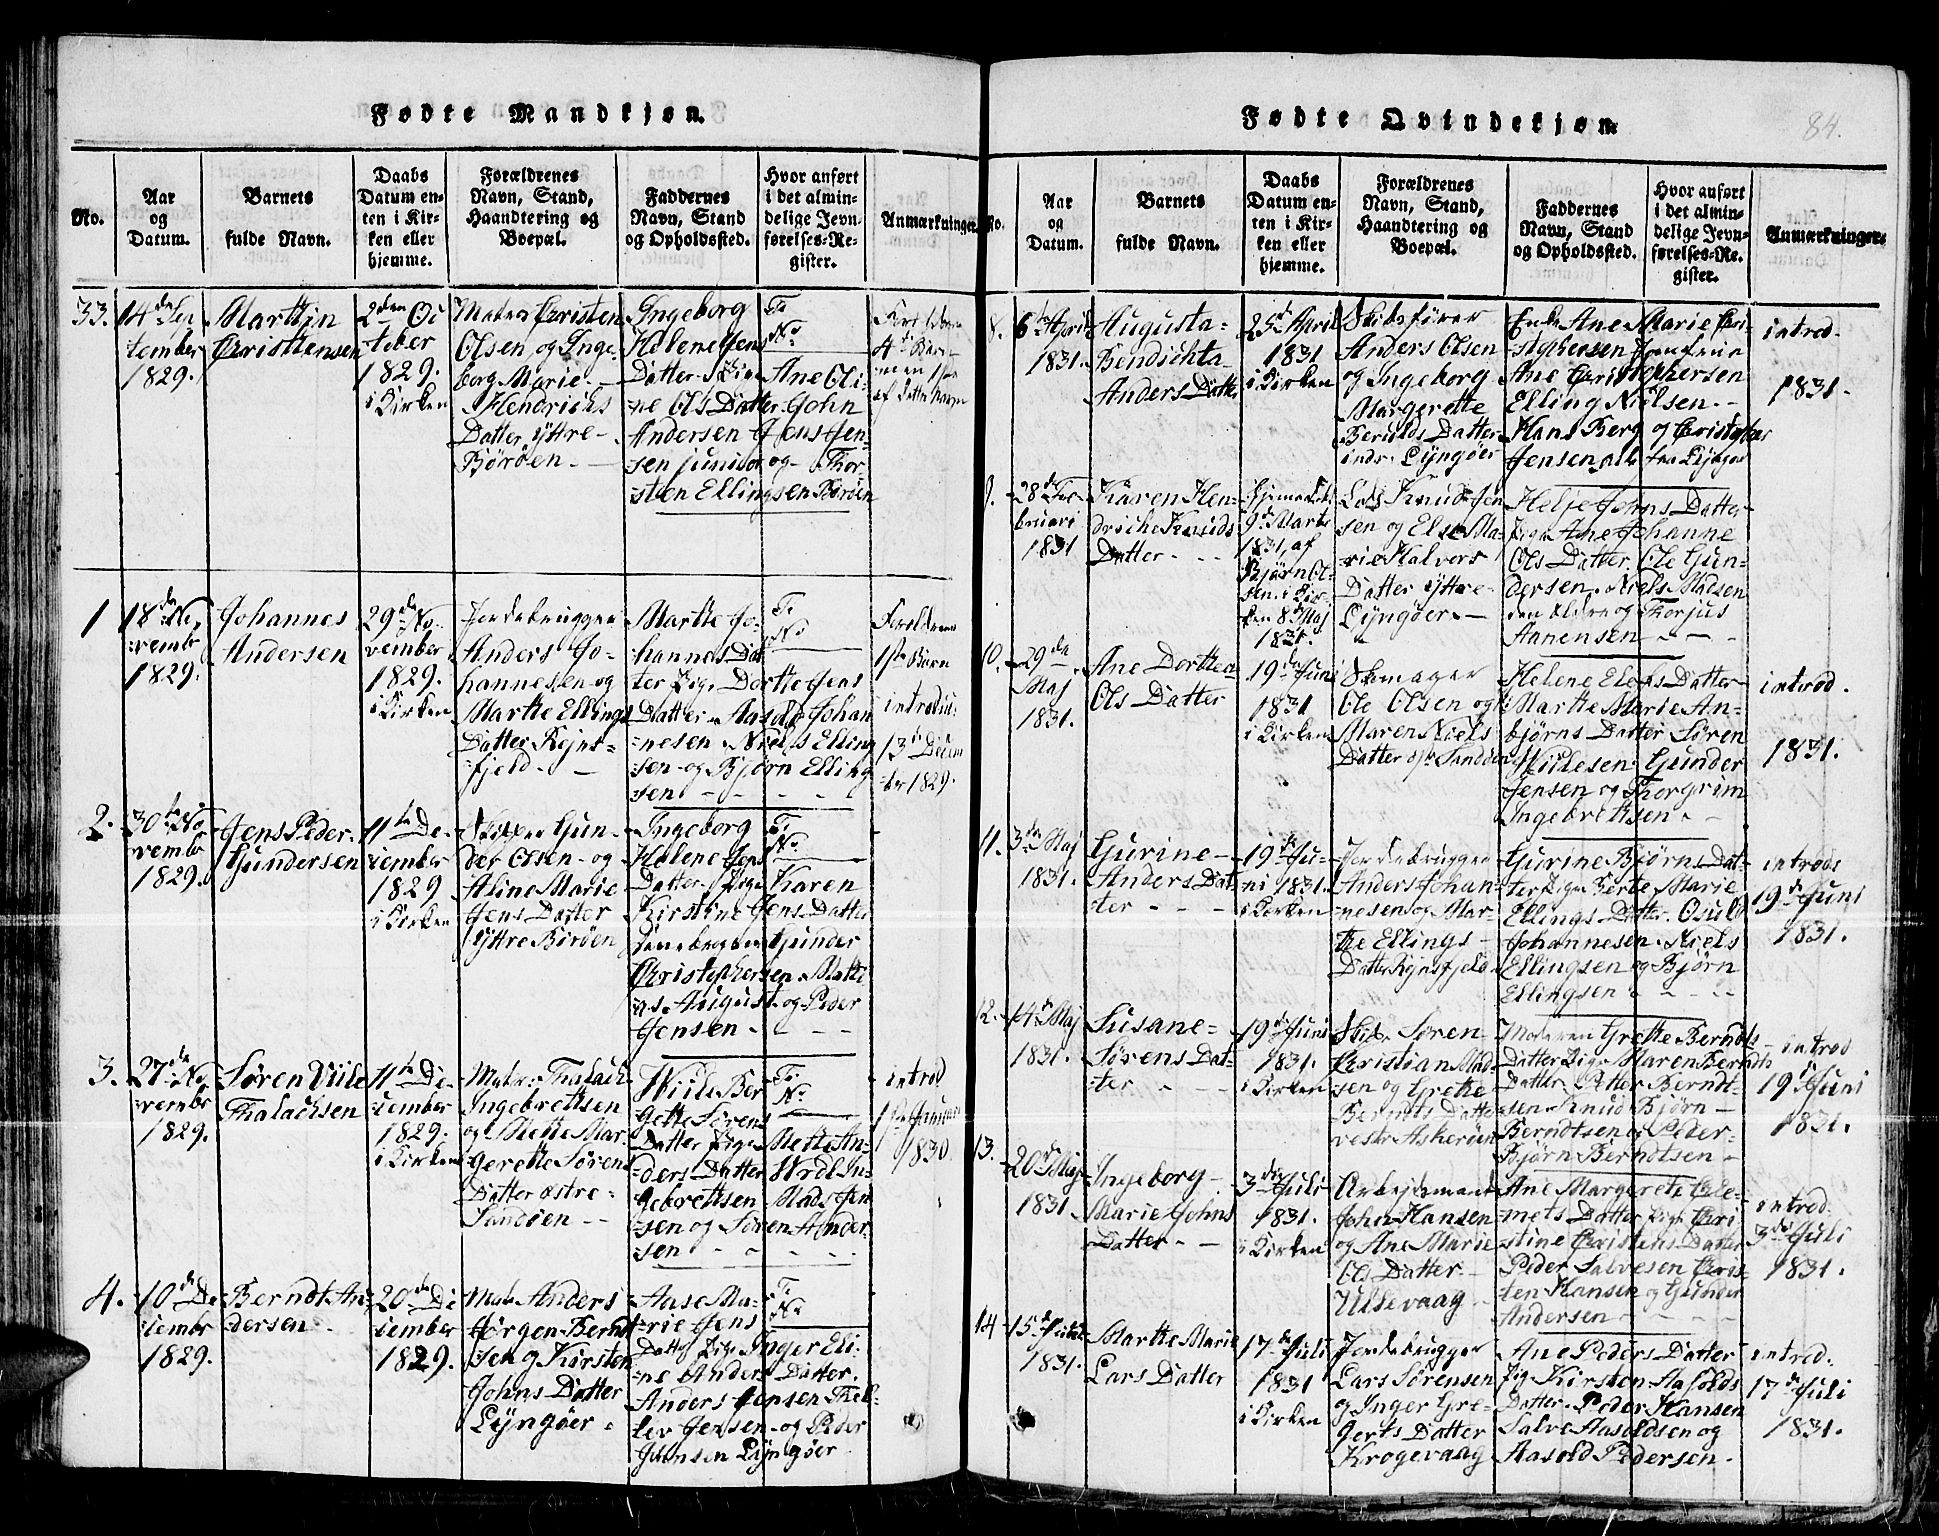 Fødte Mandkjøn.
No.
Aar
og
Datum.
Barnets
fulde Navn.
Daabs
Datum en-
ten i Kir-
ken eller
hjemme.
Forældrenes
Navn, Stand,
Haandtering og
Boepæl.
Faddernes
Navn, Stand
og Opholdssted.
Hvor anført
i det almin-
delige Jevn-
førelses-Re-
gister.
Anmærkninger.
33.
14de Sep
tember
1829.
Marthin
Christensen
2den Oc
tober
1829.
i Kirken
Matros Christen
Olsen og Inge-
borg Marie
Hendrichs
Datter, Yttre
Björöen.
Ingeborg
Helene Jens
Datter Pige Ane Oli-
ne Ols Datter John
Andersen Jens Jen-
sen junior og Thor-
sten Ellingsen Borøen
Fo.
No.
Forældrene
4de Barn
men 1ste
af dette Navn
1
18de No
vembr
1829.
Johannes
Andersen
29de No-
vember
1829.
i Kirken
Jordebrugger
Anders Jo-
hannesen og
Marthe Ellings
Datter Rejns-
fjeld.
Marthe Jo-
hannes Dat
ter Pige Dorthe Jens
Datter Aasold Johan
nesen Niels Elling
sen og Bjørn Elling
sen
Fo.
No.
Forældrene
1ste Barn
introdu:
13de Decem
ber 1829.
2.
30te No
vembr
1829.
Jens Peder
Gundersen
11te De-
cember
1829
i Kirken
Skipper Gun-
der Olsen og
Aline Marie
Jens Datter
Yttre Boröen
Ingeborg
Helene Jens
Datter Pige Karen
Kirstine Jens Datter
Gunder
Christophersen Mathi
as August og Peder
Jensen
Fo.
No.
3.
27de No
vembr
1829.
Søren Viile
Thalachsen
11te De-
cember
1829.
i Kirken
Matr: Thalach
Ingebrethsen
og Mette Mar-
gerethe Sørens
Datter østre
Sandøen
Wiile Ber
gethe Sørens
Datter Pige Mette An-
ders Datter Wrol In-
gebrethsen Mads Jen
sen og Søren Ander
sen
Fo.
No.
introd
1ste Januar
1830.
4.
10de De-
cembr
1829.
Berndt An-
dersen
20de De
cember
1829.
Matr Anders
Jörgen Bernt
sen og Kirsten
Johns Datter
Lyngöer
Aase Ma-
rie Jens
Datter Pige Inger Eli-
ne Anders Datter.
Anders Jensen Thel-
lev Jensen og Peder
Jensen Lyngøer
Fo.
No.
Fødte Qvindekjøn.
84.
No.
Aar
og
Datum.
Barnets
fulde Navn.
Daabs
Datum en-
ten i Kir-
ken eller
hjemme.
Forældrenes
Navn, Stand,
Haandtering og
Boepæl.
Faddernes
Navn, Stand
og Opholdssted.
Hvor anført
i det almin-
delige Jevn-
førelses-Re-
gister.
Anmærkninger.
8.
6te April
1831.
Augusta
Bendichta
Anders Datter
25de April
1831
i Kirken
Skibsfører
Anders Olsen
og Ingeborg
Margerethe
Berulds Datter
indr. Lyngøer
Enke Ane Marie Chri-
stophersen Jomfrue
Ane Christophersen
Elling Nielsen
Hans Berg og Christopher
Jensen alle fra Lyngør
introd.
1831.
9.
28de Fe-
bruari
1831
Karen Hen-
driche Knuds
Datter
hjemmedøbt
9de Marts
1831, af
Bjørn Ol-
sen. i Kir-
ken 8de Maj
1831.
Lods Knud Jen
sen og Else Ma-
rie Halvors
Datter Yttre
Lyngöer
Helje Johns Datter
Pige Ane Johanne
Ols Datter, Ole Gun-
dersen, Niels Madsen
den eldre og Thorjus
Aanensen
10.
29de
Maj
1831.
Ane Dorthea
Ols Datter
19de Juni
1831
i Kirken
Skomager
Ole Olsen og
Maren Niels
Datter Sandøen
Helene Elefs Datter
Marthe Marie An-
björns Datter Sören
Wiilesen Gunder
Jensen og Thorgrim
Ingebrethsen
introd.
1831.
11.
3de Maj
1831.
Gurine
Anders Dat
ter
19de Ju-
ni 1831.
i Kirken
Jordebrugger
Anders Johan-
nesen og Mar-
the Ellings
Datter Rejnsfjeld
Gurine Bjørns Dat-
ter Pige Berte Marie
Ellings Datter. Osuld
Johannesen. Niels
Ellingsen og Bjørn
Ellingsen
introds
19de Juni
1831.
12.
14de Maj
1831.
Susane
Sörens Dat-
ter
19de Juni
1831.
i Kirken
Skip. Søren
Christian Mad
sen og Grethe
Bernts Datter
vestr Askerøen
Moderen Grethe Berndts
Datter Pige Maren Berndts
Datter Petter Berndt-
sen Knud Bjørn
Berndtsen og Peder
Bjørn Berndtsen
introd
19de Juni
1831.
13.
20de Maj
1831.
Ingeborg
Marie Johns
Datter
3de Juli
1831.
i Kirken
Arbejdsmand
John Hansen
og Ane Marie
Ols Datter
Ullevaag
Ane Margrete Cle-
mets Datter Pige Chri
stine Christens Datter
Peder Salvesen Chris-
ten Hansen og Gunder
Andersen
introd.
3de Juli
1831.
14
15de
1831.
Marthe Marie
Lars Datter
17de Juli
1831
i Kirken
Jordebrugger
Lars Sørensen
og Inger Gre-
gerts Datter
Krogevaag
Ane Peders Datter
Pig Kirsten Aasolds
Datter. Peder Hansen
Salve Aasoldsen og
Aasold Pedersen
introd.
17de Juli
1831.